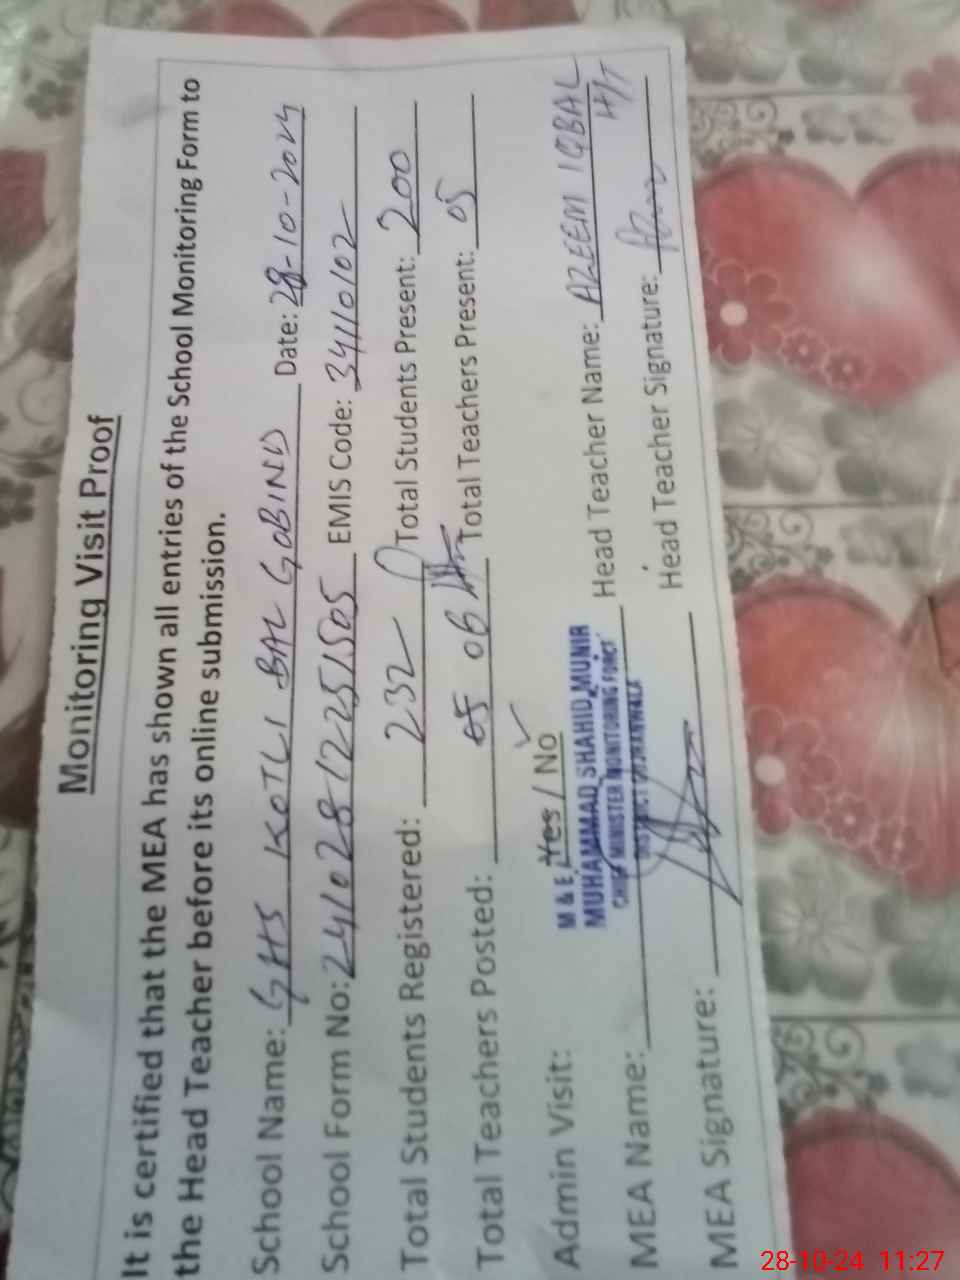 Monitoring Visit Proof
It is certified that the MEA has shown all entries of the School Monitoring Form to
the Head Teacher before its online submission.
School Name: GHS KOTLI BAL GOBIND Date: 28-10-2024
School Form No: 24102812251505 EMIS Code: 34110102
Total Students Registered: 232 Total Students Present: 200
Total Teachers Posted: 06 Total Teachers Present: 05
Admin Visit: Yes / No
M & E
MUHAMMAD SHAHID MUNIR
CHIEF MINISTER MONITORING FORCE
DISTRICT GUJRANWALA
MEA Name: Head Teacher Name: AZEEM IQBAL
H/T
MEA Signature: Head Teacher Signature:
28-10-24 11:27